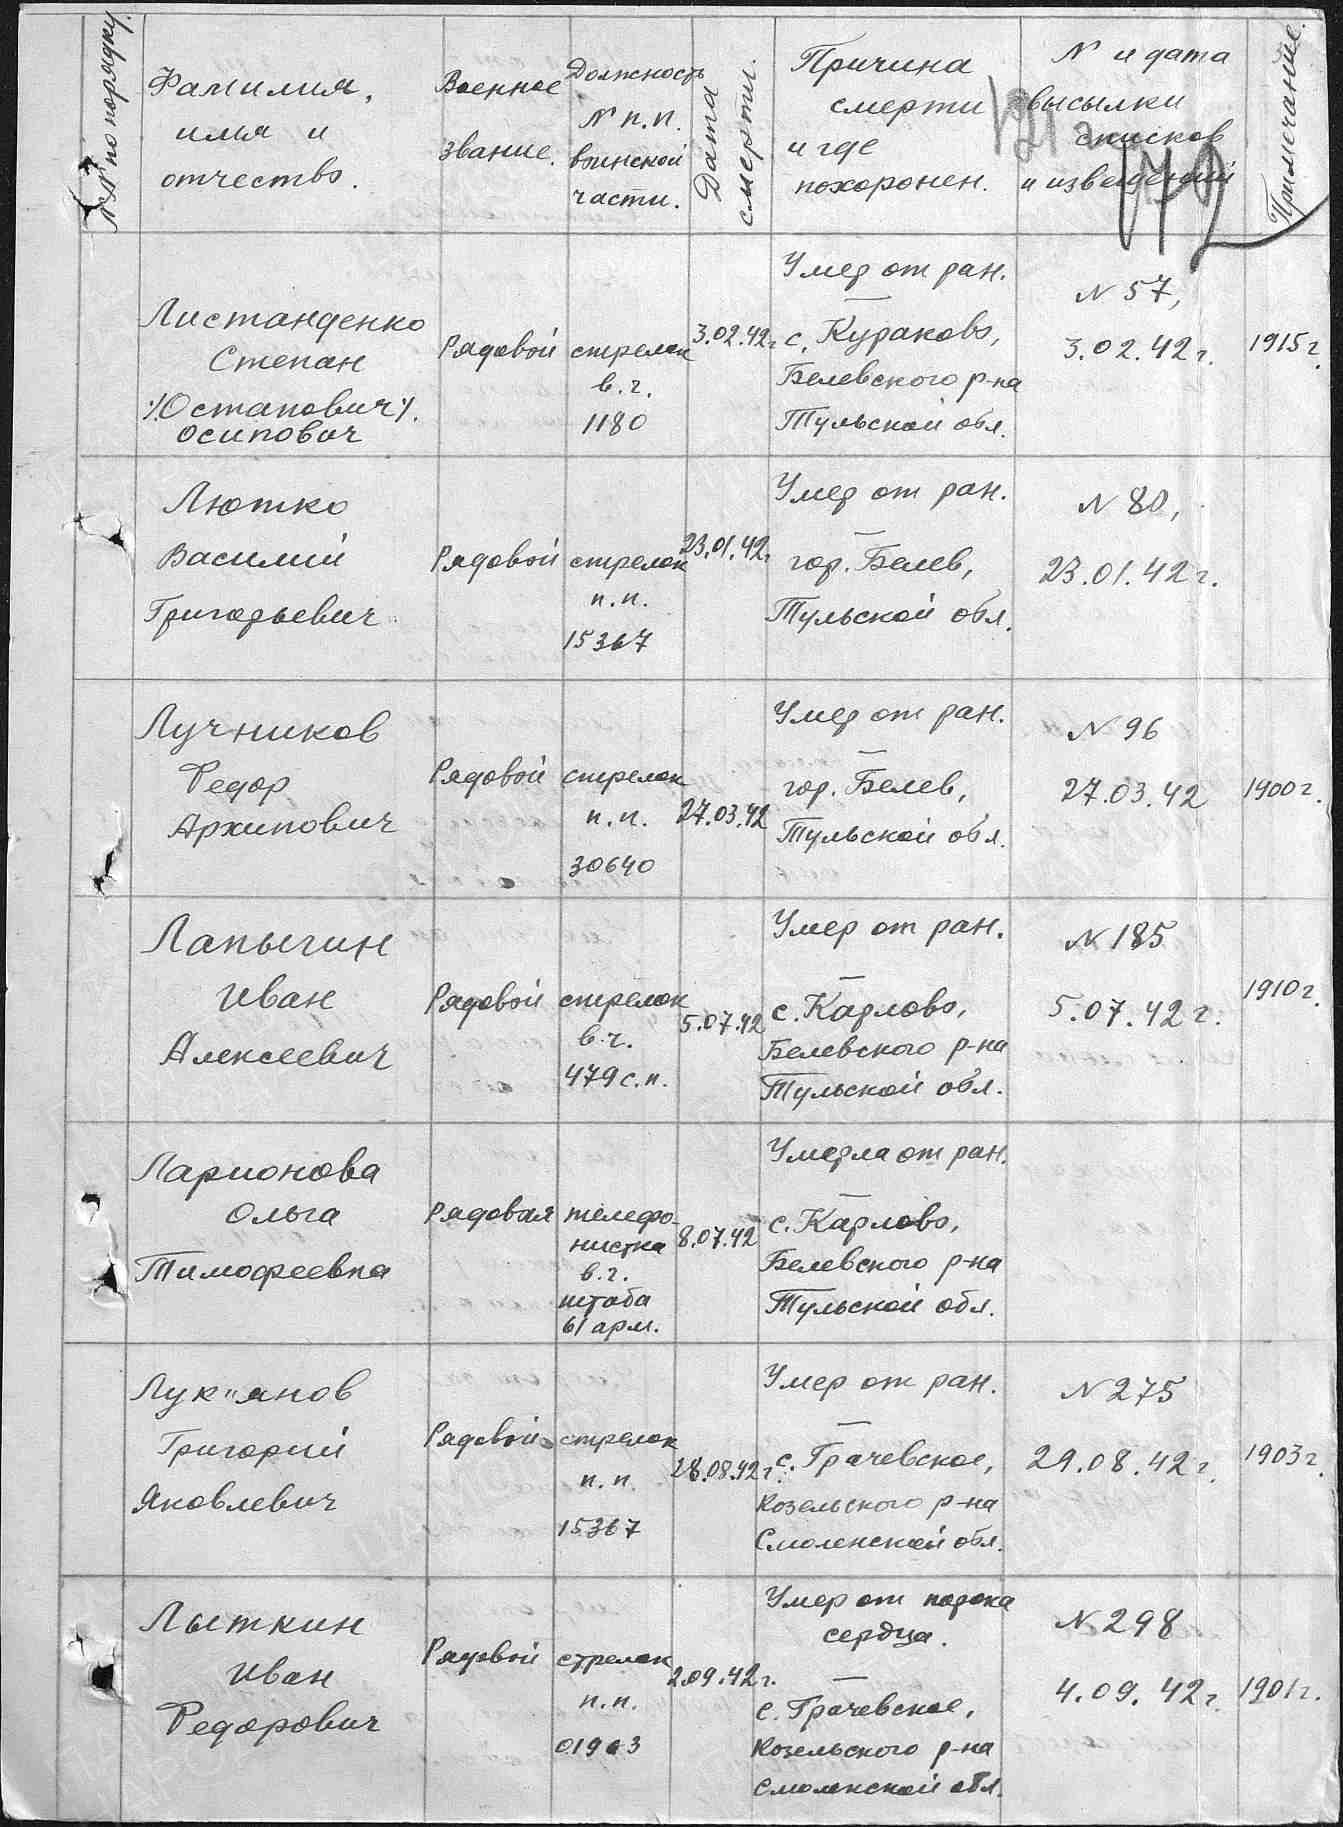 №№ по порядку.
Фамилия,
имя и
отчество.
Военное
звание.
Должность
N п.п.
воинской
части.
Дата
смерти.
Причина
смерти
и где
похоронен.
N и дата
высылки
списков
и извещений
Примечание.
172
Листанденко
Степан
/Остапович/.
Осипович
Рядовой
стрелок
в.ч.
1180
3.02.42г.
Умер от ран.
с. Кураково,
Белевского р-на
Тульской обл.
N 57,
3.02.42г.
1915г.
Лютко
Василий
Григорьевич
Рядовой
стрелок
п.п.
15367
23.01.42г.
Умер от ран.
гор. Белев,
Тульской обл.
N 80,
23.01.42г.
Лучников
Федор
Архипович
Рядовой
стрелок
п.п.
30640
27.03.42
Умер от ран.
гор. Белев,
Тульской обл.
N 96
27.03.42
1900г.
Лапыгин
Иван
Алексеевич
Рядовой
стрелок
в.ч.
479 с.п.
5.07.42
Умер от ран.
с. Карлово,
Белевского р-на
Тульской обл.
N 185
5.07.42г.
1910г.
Ларионова
Ольга
Тимофеевна
Рядовая
телефо-
нистка
в.ч.
штаба
61 арм.
8.07.42
Умерла от ран.
с. Карлово,
Белевского р-на
Тульской обл.
Лук"янов
Григорий
Яковлевич
Рядовой
стрелок
п.п.
15367
28.08.42г.
Умер от ран.
с. Грачевское,
Козельского р-на
Смоленской обл.
N 275
29.08.42г.
1903г.
Лыткин
Иван
Федорович
Рядовой
стрелок
п.п.
2.09.42г.
Умер от порока
сердца.
с. Грачевское,
Козельского р-на
Смоленской обл.
N 298
4.09.42г.
1901г.